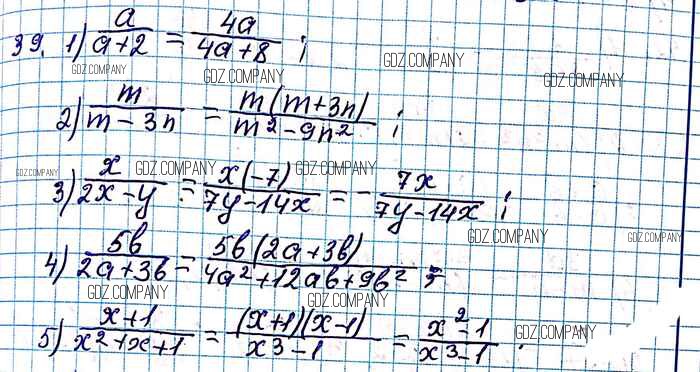 39. 1) a/(a+2) = 4a/(4a+8) ;
GDZ.COMPANY GDZ.COMPANY GDZ.COMPANY GDZ.COMPANY
2) m/(m-3n) = m(m+3n)/(m²-9n²) ;
GDZ.COMPANY GDZ.COMPANY GDZ.COMPANY
3) x/(2x-y) = x(-7)/(7y-14x) = - 7x/(7y-14x) ;
GDZ.COMPANY GDZ.COMPANY
4) 5b/(2a+3b) = 5b(2a+3b)/(4a²+12ab+9b²) ;
GDZ.COMPANY GDZ.COMPANY
5) (x+1)/(x²+x+1) = (x+1)(x-1)/(x³-1) = (x²-1)/(x³-1) .
GDZ.COMPANY